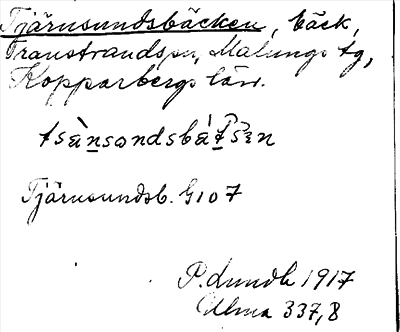 Tjärnsundsbäcken, bäck,
Transtrands sn, Malungs tg,
Kopparbergs län.
Tjärnsundsb. G107
P. Lundh 1917
Ulma 337,8